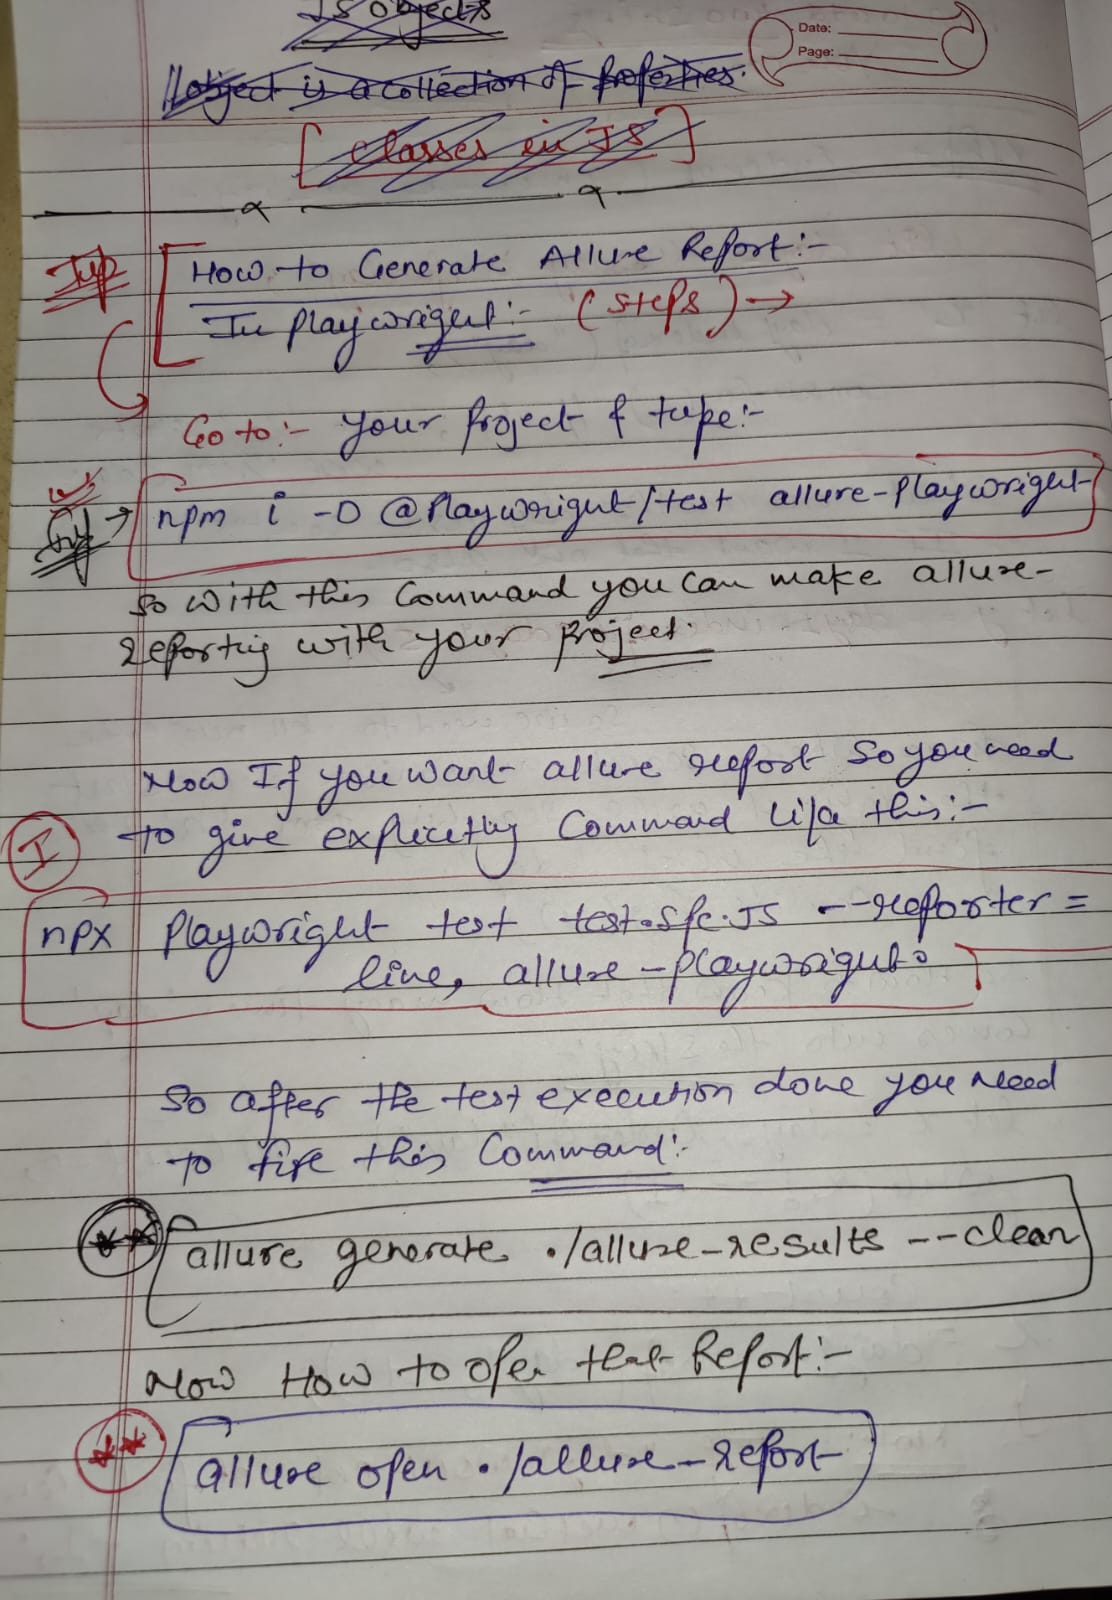 JS objects
Date:
Page:
// object is a collection of properties.
[ classes in JS ]
Imp
How to Generate Allure Report:-
In playwright:- (steps) →
Go to:- your project & type:-
npm i -D @playwright/test allure-playwright
So with this Command you can make allure-
reporting with your project.
Now If you want allure report so you need
to give explicetly Command like this:-
I
npx playwright test test.spec.JS --reporter=
line, allure-playwright
So after the test execution done you need
to fire this Command:-
** allure generate ./allure-results --clean
Now How to open that Report:-
** allure open ./allure-report